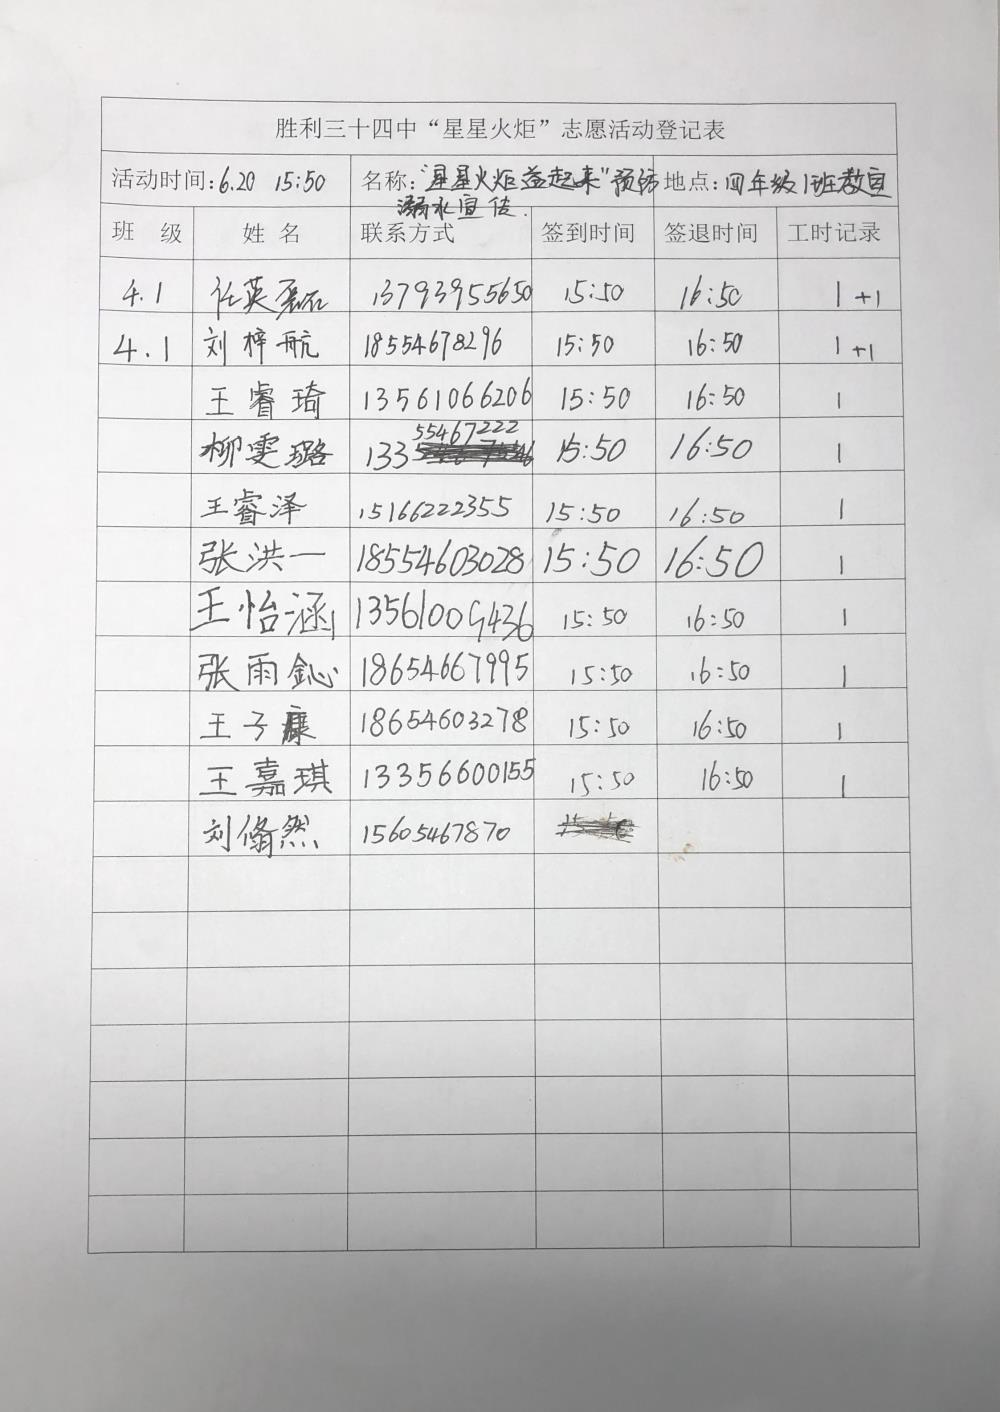 胜利三十四中“星星火炬”志愿活动登记表
活动时间:6.20 15:50 名称:“星星火炬益起来”预防 地点:四年级1班教室
溺水宣传.
班 级 姓 名 联系方式 签到时间 签退时间 工时记录
4.1 任英磊 13793955650 15:50 16:50 1 +1
4.1 刘梓航 18554678296 15:50 16:50 1 +1
王睿琦 13561066206 15:50 16:50 1
55467222
柳雯璐 133 15:50 16:50 1
王睿泽 15166222355 15:50 16:50 1
张洪一 18554603028 15:50 16:50 1
王怡涵 13561009436 15:50 16:50 1
张雨鈊 18654667995 15:50 16:50 1
王子康 18654603278 15:50 16:50 1
王嘉琪 13356600155 15:50 16:50 1
刘翛然 15605467870